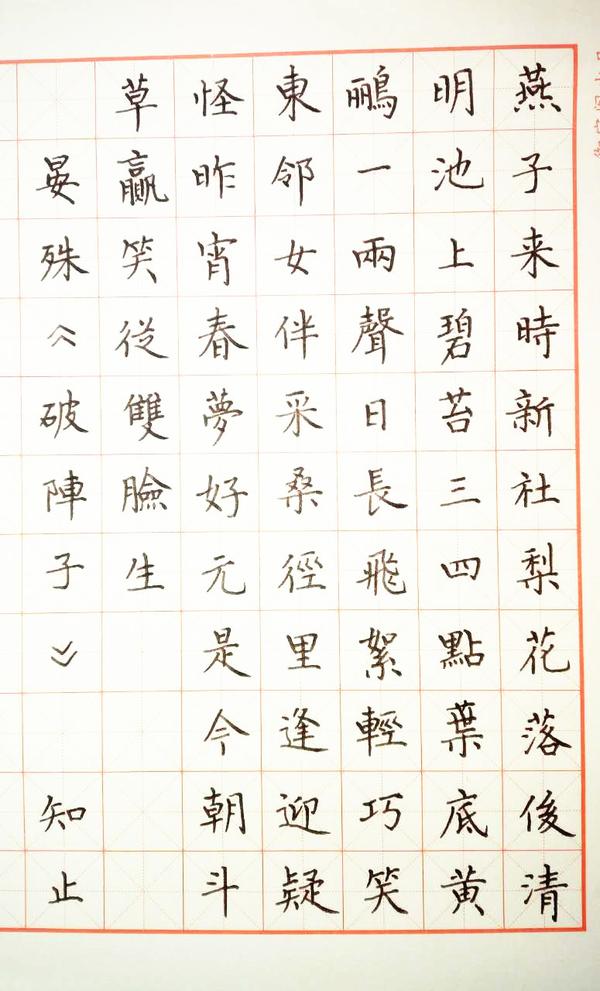 燕子来時新社梨花落後清
明池上碧苔三四點葉底黄
鸝一兩聲日長飛絮輕巧笑
東邻女伴采桑徑里逢迎疑
怪昨宵春夢好元是今朝斗
草贏笑從雙臉生
晏殊《破陣子》知止